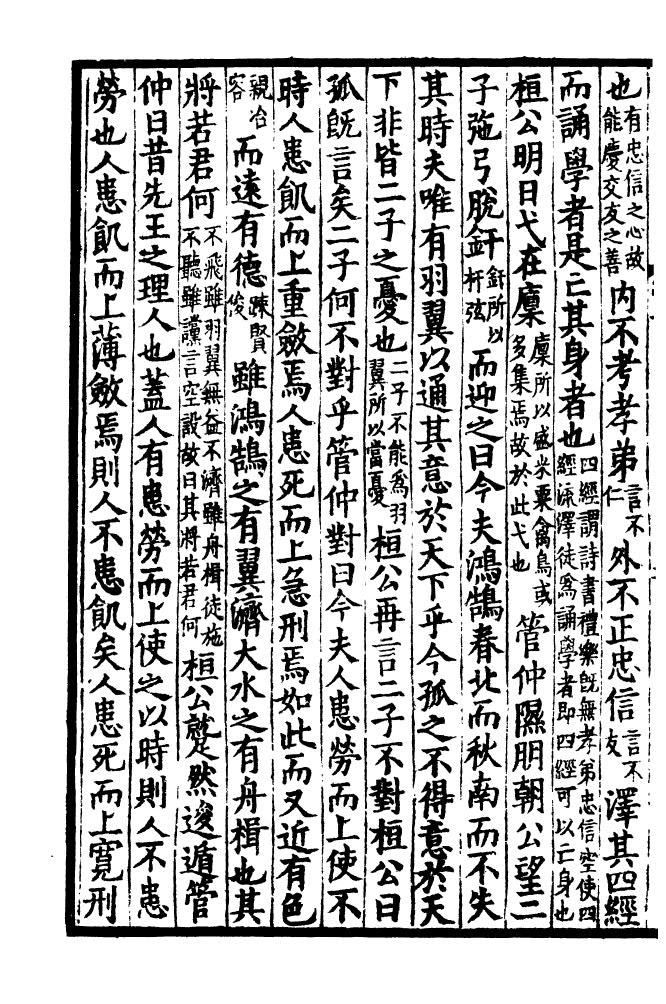 也有忠信之心故能慶交友之善內不考孝弟言不仁外不正忠信言不友澤其四經
而誦學者是亡其身者也四經謂詩書禮樂旣無孝弟忠信空使四經流澤徒爲誦學者卽四經可以亡身也
桓公明日弋在廩廩所以盛米粟禽鳥或多集焉故於此弋也管仲隰朋朝公望二
子弛弓脫釬釬所以杆弦而迎之曰今夫鴻鵠春北而秋南而不失
其時夫唯有羽翼以通其意於天下乎今孤之不得意於天
下非皆二子之憂也二子不能爲羽翼所以當憂桓公再言二子不對桓公曰
孤旣言矣二子何不對乎管仲對曰今夫人患勞而上使不
時人患飢而上重斂焉人患死而上急刑焉如此而又近有色
親冶容而遠有德踈賢俊雖鴻鵠之有翼濟大水之有舟楫也其
將若君何不飛雖羽翼無益不濟雖舟楫徒施不聽雖讜言空設故曰其將若君何桓公蹵然逡遁管
仲曰昔先王之理人也蓋人有患勞而上使之以時則人不患
勞也人患飢而上薄斂焉則人不患飢矣人患死而上寬刑